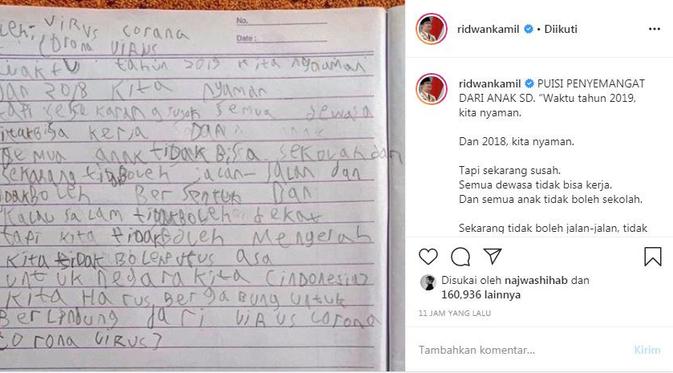 No.
Date :
oleh: VIRUS corana
CORONA VIRUS
waktu tahun 2019 kita nyaman
Dan 2018 kita nyaman
tapi sekarang susah semua dewasa
tidak Bisa kerja DAN
semua anak tidak Bisa sekolah dan
sekarang tidBoleh jalan-jalan dan
tidakBoleh BerSentuh Dan
kalau salam tidakBoleh dekat
tapi kita tidakBoleh Mengelah
kita tidak Boleh Putus asa
untuk negara kita (indonesia)
kita Harus BergaBung untuk
BerLindung dari VIRUS corona
(corona VIRUS)
ridwankamil • Diikuti
ridwankamil PUISI PENYEMANGAT
DARI ANAK SD. "Waktu tahun 2019,
kita nyaman.
Dan 2018, kita nyaman.
Tapi sekarang susah.
Semua dewasa tidak bisa kerja.
Dan semua anak tidak boleh sekolah.
Sekarang tidak boleh jalan-jalan, tidak
Disukai oleh najwashihab dan
160,936 lainnya
11 JAM YANG LALU
Tambahkan komentar...
Kirim